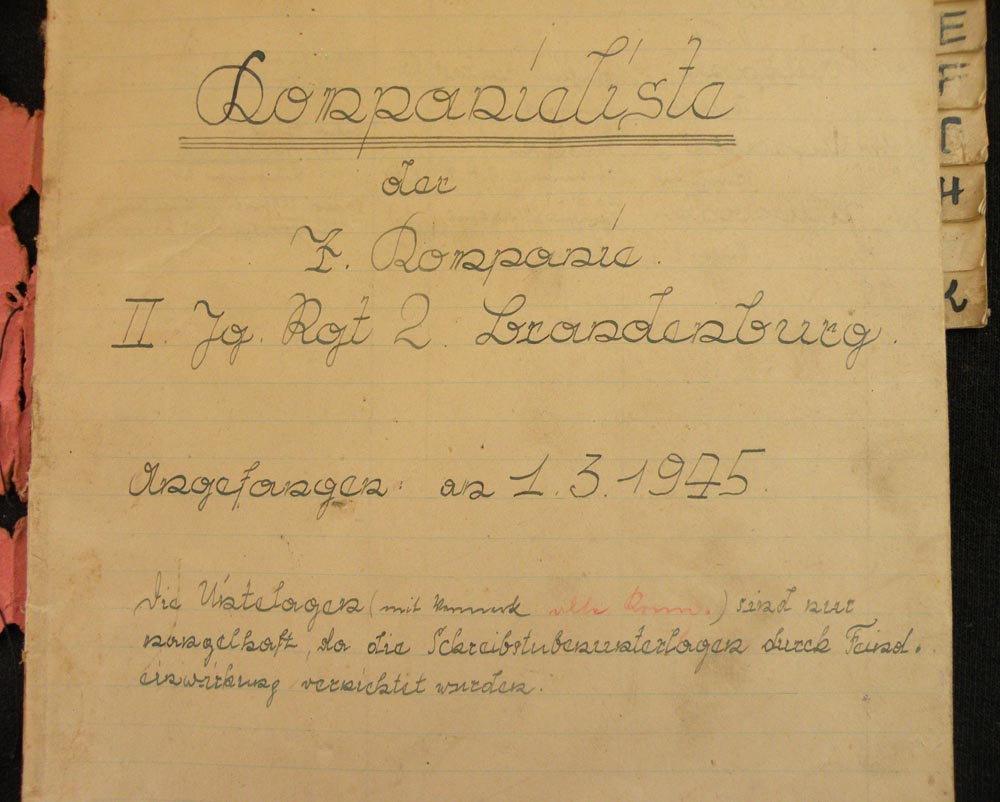 Kompanieliste
der
7. Kompanie.
II. Jg. Rgt 2. Brandenburg.
Angefangen: am 1.3.1945.
Die Untelagen (mit Vermerk alte ) sind nur
mangelhaft, da die Schreibstubenunterlagen durch Feind-
einwirkung vernichtet wurden.
E
F
G
H
K